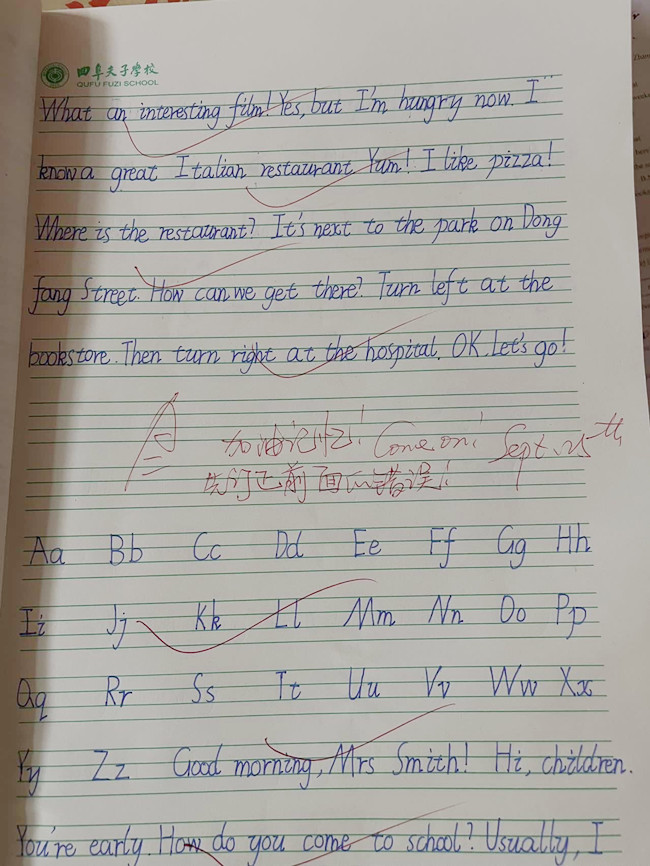 曲阜夫子学校
QUFU FUZI SCHOOL
What an interesting film! Yes, but I'm hungry now. I
know a great Italian restaurant. Yum! I like pizza!
Where is the restaurant? It's next to the park on Dong
fang Street. How can we get there? Turn left at the
bookstore. Then turn right at the hospital. OK. Let's go!
A
加油记忆! Come on! Sept. 25th
先订正前面的错误!
Aa Bb Cc Dd Ee Ff Gg Hh
Ii Jj Kk Ll Mm Nn Oo Pp
Qq Rr Ss Tt Uu Vv Ww Xx
Yy Zz Good morning, Mrs Smith! Hi, children.
You're early. How do you come to school? Usually, I